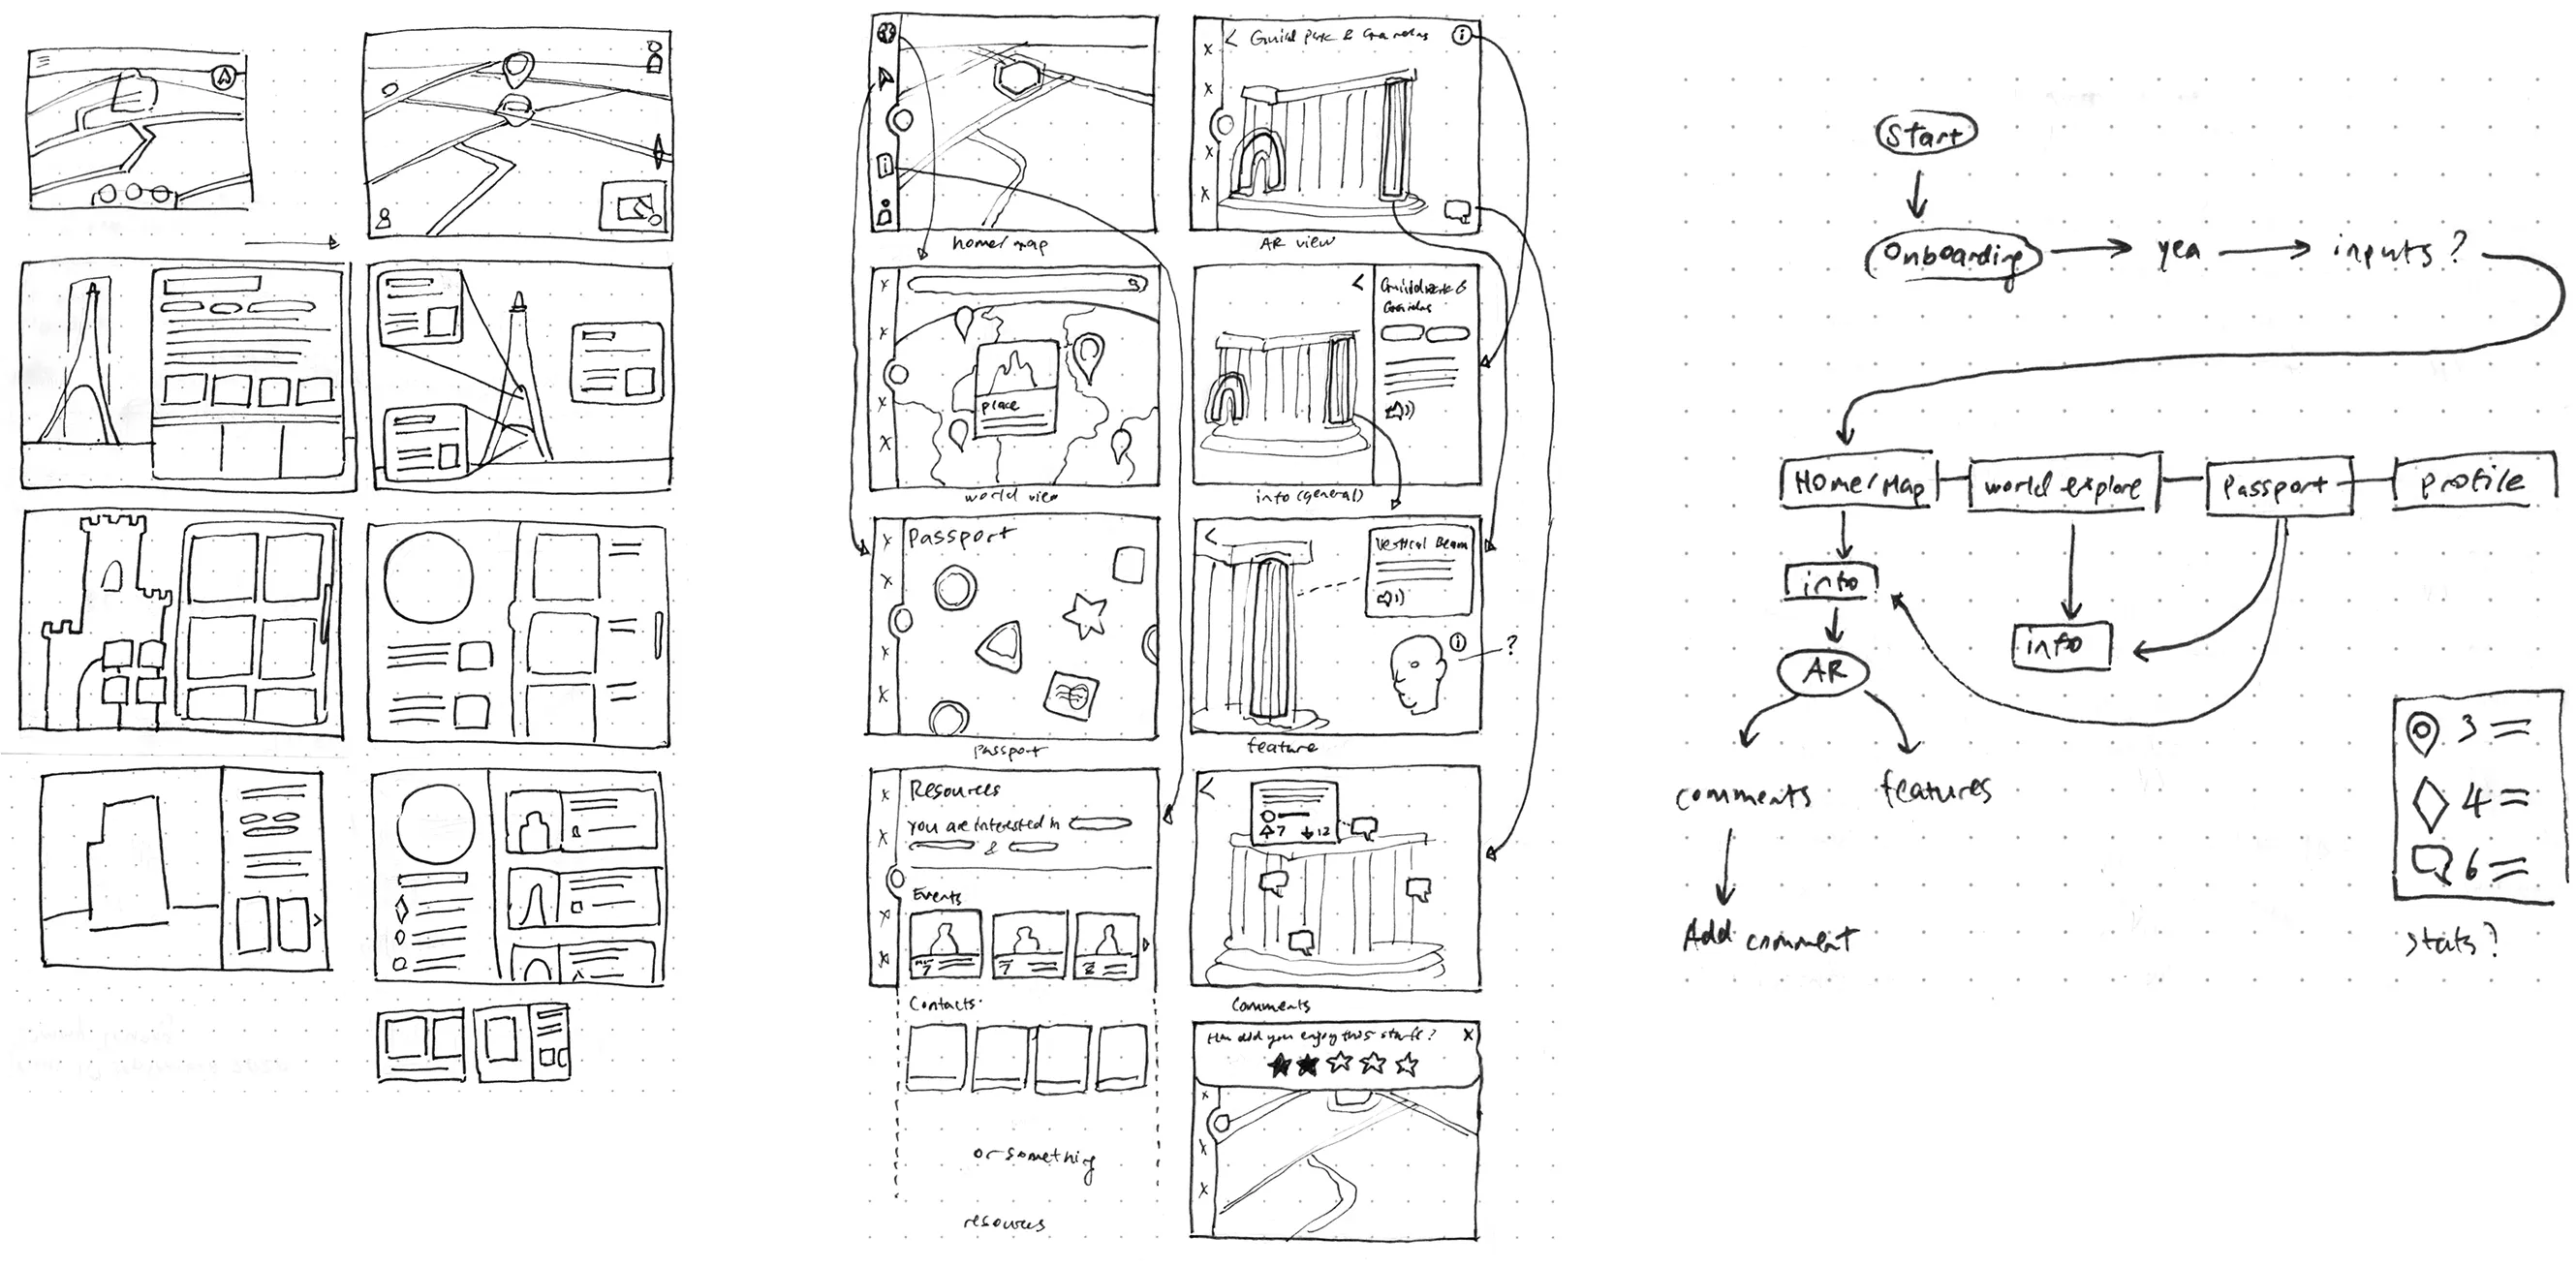 Guild Park & Gardens
home/map
AR view
place
world view
Guild Park &
Gardens
info (general)
Passport
passport
Vertical Beam
?
feature
Resources
you are interested in
&
Events
7
7
2
Contacts
or something
resources
7 12
Comments
How did you enjoy this stuff?
X
Start
Onboarding
yea
inputs?
Home/Map
world explore
Passport
profile
info
info
AR
comments
features
Add comment
3
4
6
stats?